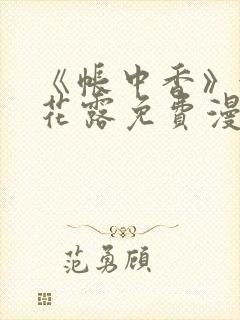 《帐中香》
花露免费漫
范勇顾